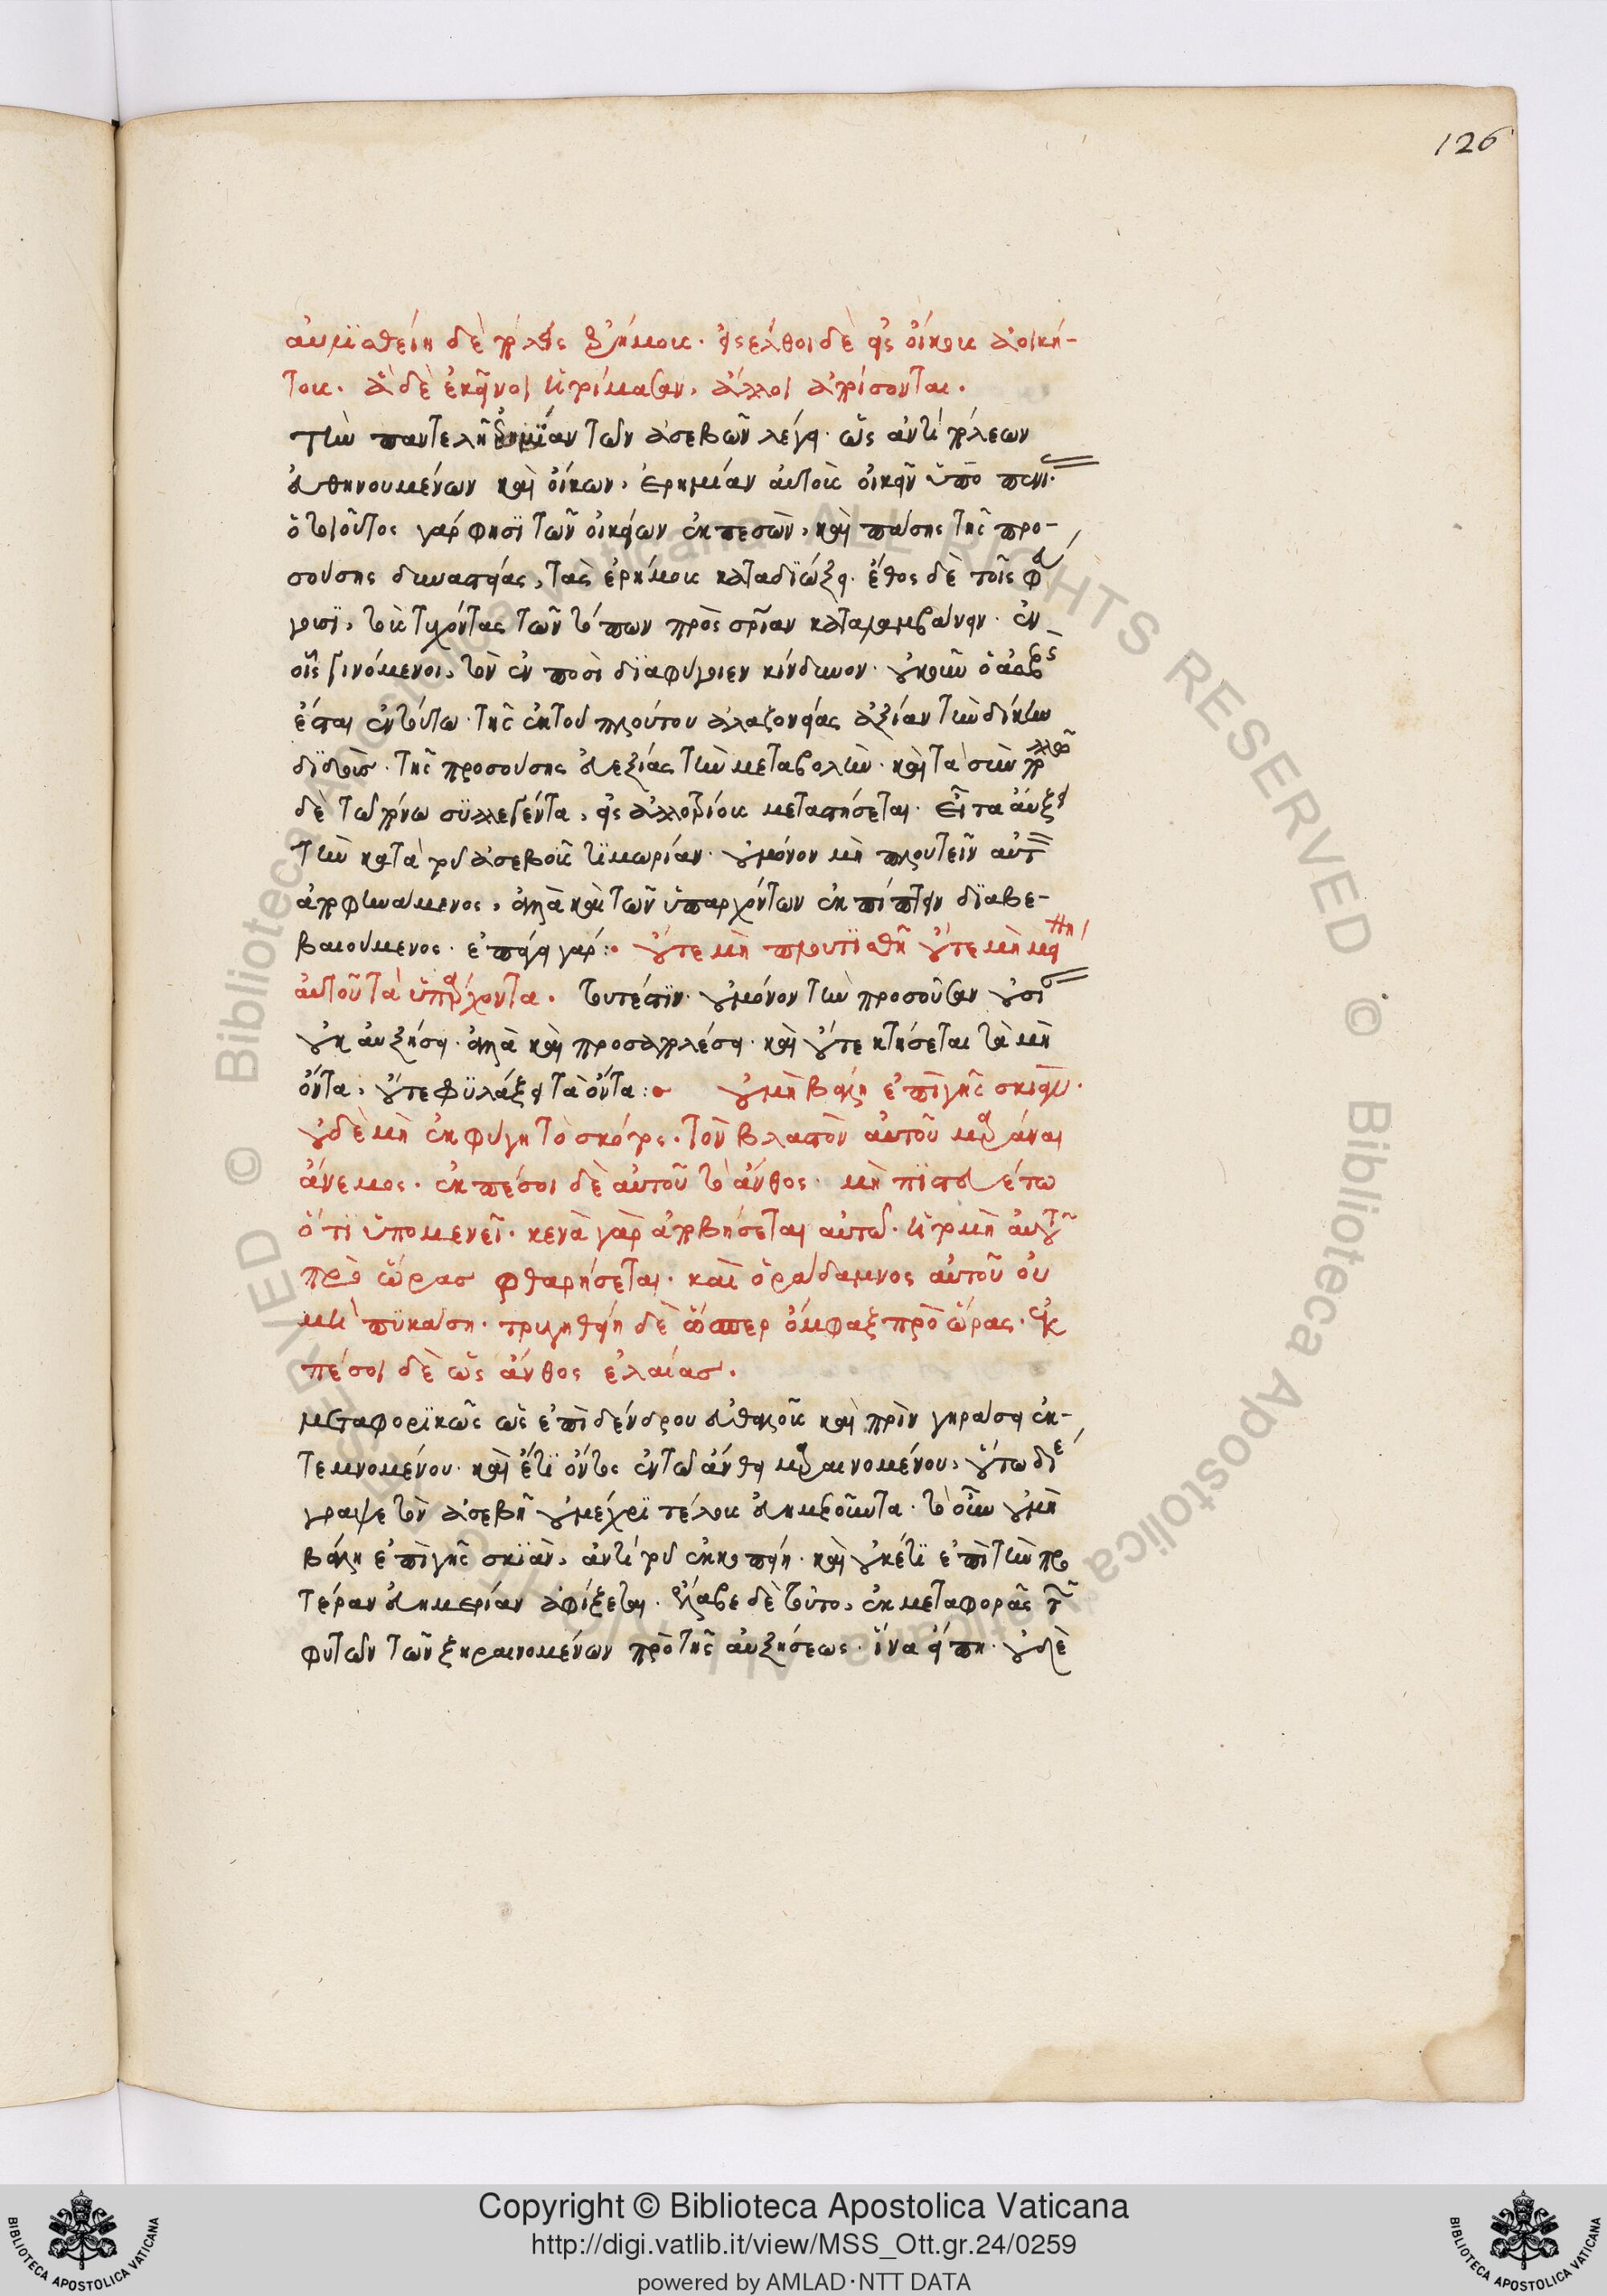 126
αὐλισθείη δὲ πόλεις ἐρήμους. εἰσέλθοι δὲ εἰς οἴκους ἀοική-
τους. ἃ δὲ ἐκεῖνοι ἡτοίμασαν, ἄλλοι ἀποίσονται.
τὴν παντελῆ ἐρημίαν τῶν ἀσεβῶν λέγει. ὡς ἀντὶ πόλεων
εὐθηνουμένων καὶ οἴκων, ἐρημίαν αὐτοὺς οἰκεῖν ὑπὸ
ὁ τοιοῦτος γάρ φησι τῶν οἰκείων ἐκπεσὼν, καὶ πάσης τῆς προ-
σούσης δυναστείας, τὰς ἐρήμους καταδιώξει. ἔθος δὲ τοῖς
τῶν τόπων πρὸς σωτηρίαν καταλαμβάνειν. ἐν
οἷς γινόμενοι, τὸν ἐν ποσὶ διαφύγοιεν κίνδυνον. οὐκοῦν ὁ ἀσεβὴς
ἔσται ἐν τούτῳ. τῆς ἐκ τοῦ πλούτου ἀλαζονείας ἀξίαν τὴν δίκην
διδοὺς. τῆς προσούσης εὐεξίας τὴν μεταβολὴν. καὶ τὰ σὺν πολλῷ
δὲ τῷ πόνῳ συλλεγέντα, εἰς ἀλλοτρίους μεταστήσεται. εἶτα αὔξει
τὴν κατὰ τοῦ ἀσεβοῦς τιμωρίαν. οὐ μόνον μὴ πλουτεῖν αὐτὸν
ἀποφηνάμενος, ἀλλὰ καὶ τῶν ὑπαρχόντων ἐκπίπτειν διαβε-
βαιούμενος. ἐπάγει γάρ: οὔτε μὴ πλουτισθῇ οὔτε μὴ μείνῃ
αὐτοῦ τὰ ὑπάρχοντα. τουτέστιν. οὐ μόνον τὴν προσοῦσαν οὐσίαν
οὐκ αὐξήσει. ἀλλὰ καὶ προσαπολέσει. καὶ οὔτε κτήσεται τὰ μὴ
ὄντα, οὔτε φυλάξει τὰ ὄντα: οὐ μὴ βάλῃ ἐπὶ γῆς σκιὰν.
οὐδὲ μὴ ἐκφύγῃ τὸ σκότος. τὸν βλαστὸν αὐτοῦ μαράναι
ἄνεμος. ἐκπέσοι δὲ αὐτοῦ τὸ ἄνθος. μὴ πιστευέτω
ὅτι ὑπομενεῖ. κενὰ γὰρ ἀποβήσεται αὐτῷ. ἡ τομὴ αὐτοῦ
πρὸ ὥρας φθαρήσεται. καὶ ὁ ράδαμνος αὐτοῦ οὐ
μὴ πυκάσῃ. τρυγηθείη δὲ ὥσπερ ὄμφαξ πρὸ ὥρας. ἐκ
πέσοι δὲ ὡς ἄνθος ἐλαίας.
μεταφορικῶς ὡς ἐπὶ δένδρου εὐθαλοῦς καὶ πρὶν γηράσει ἐκ-
τεμνομένου. καὶ ἔτι ὄντος ἐν τῷ ἄνθει μαραινομένου, οὕτω διέ
γραψε τὸν ἀσεβῆ οὐ μέχρι τέλους εὐημεροῦντα. τὸ οὖν οὐ μὴ
βάλῃ ἐπὶ γῆς σκιὰν, ἀντὶ τοῦ ἐκκοπείη. καὶ οὐκέτι ἐπὶ τὴν προ
τέραν εὐημερίαν ἀφίξεται. ἔλαβε δὲ τοῦτο, ἐκ μεταφορᾶς τῶν
φυτῶν τῶν ξηραινομένων πρὸ τῆς αὐξήσεως. ἵνα εἴπῃ. οὐδὲ
Copyright © Biblioteca Apostolica Vaticana
http://digi.vatlib.it/view/MSS_Ott.gr.24/0259
powered by AMLAD·NTT DATA